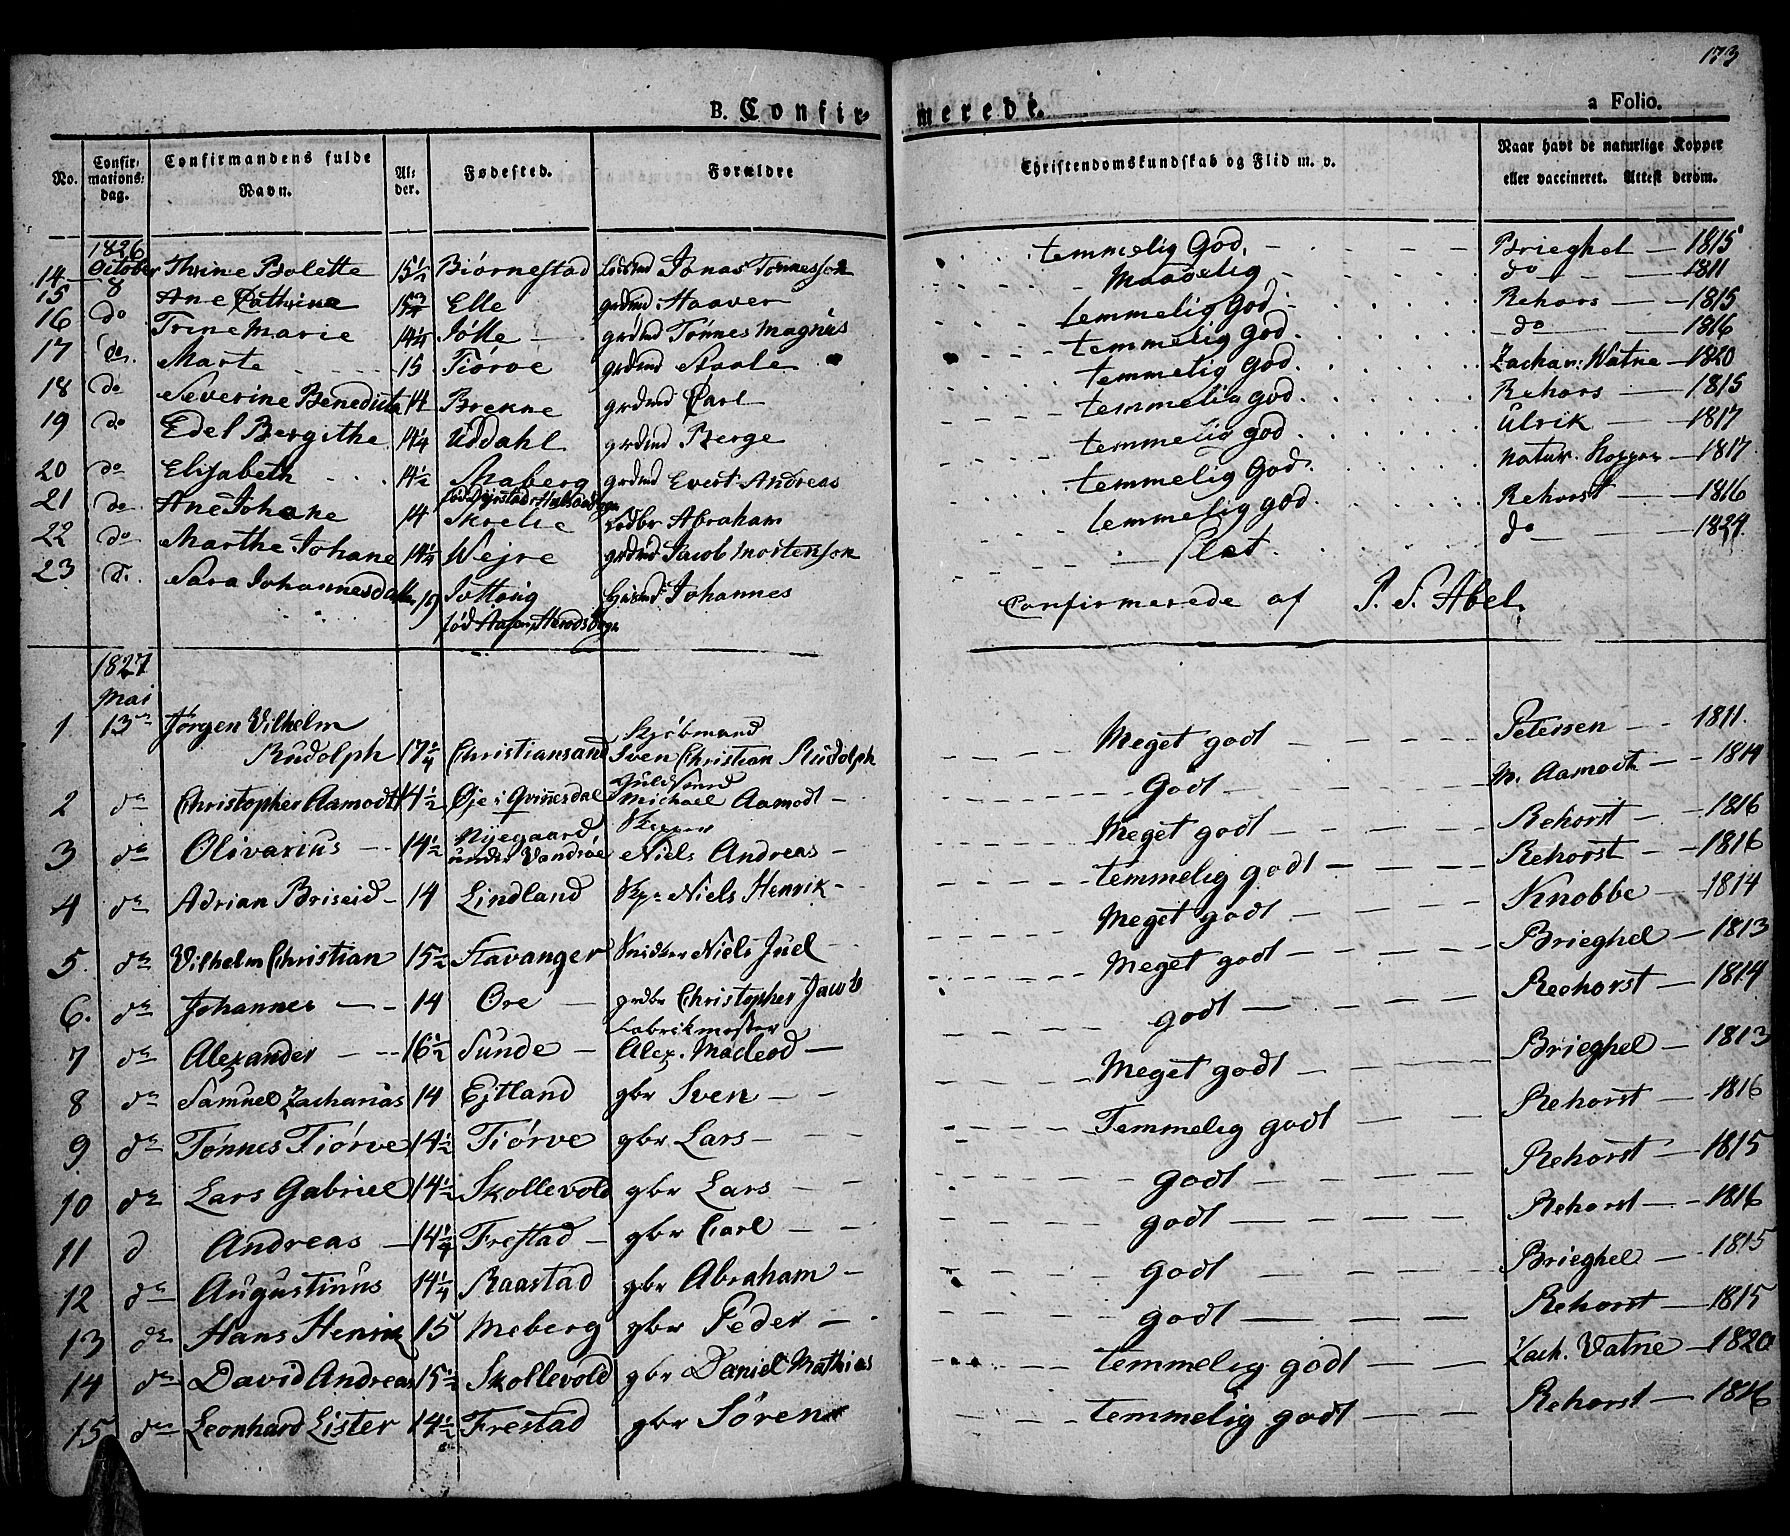 173
B. Confirmerede. a Folio.
No. Confirmationsdag. Confirmandens fulde Navn. Alder. Fødested. Forældre Christendomskundskab og Flid m. v. Naar havt de naturlige Kopper eller vaccineret. Attest derom.
1826
14 October 8 Thrine Bolette 15 1/2 Biørnestad Jonas Tønnesson temmelig God. Brieghel 1815
15 do Ane Cathrine Elle grdmd: Haaver Maadelig do 1811
16 do Trine Marie 14 1/4 Jølle grdmd Tønnes Magnus temmelig God Rehors 1815
17 do Marte 15 Tiørve grdmd Staale temmelig God. do 1816
18 do Severine Benedicta 14 Brekne grdmd Carl temmelig God. Zachar: Watne 1820
19 do Edel Bergithe 14 1/4 Uddahl grdmd Berge temmelig god. Rehors 1815
20 do Elisabeth 14 1/2 Maberg grdmd Evert Andreas temmelig god Ulrik 1817
21 do Ane Johane 14 Skrelie Abraham temmelig God. natur. Kopper 1817
22 do Marthe Johane 14 1/4 Wejre grdmd Jacob Mortensson temmelig god Rehorst 1816
23 do Sara Johannesdatter 19 Johannes slet. do 1824.
Confirmerede af P. S. Abel.
1827
Mai
1 13de Jørgen Vilhelm
Rudolph 17 1/4 Christiansand Kjøbmand Sven Christian Rudolph Meget godt Petersen 1811.
2 do Christopher Aamodt 14 1/2 Øje i Qvinesdal Guldsmed Michael Aamodt Godt M. Aamodt 1814
3 do Olivarius 14 1/2 Nyegaard, under Vandsøe Skipper Niels Andreas Meget godt Rehorst 1816
4 do Adrian Briseid 14 Lindland Niels Henrik temmelig godt Rehorst 1816
5. do Vilhelm Christian 15 1/2 Stavanger Niels Juel Meget godt Knobbe 1814
6. do Johannes 14 Øre grdbr Christopher Jacob Meget godt Brieghel 1813
7 do Alexander 16 1/2 Sunde Fabrikmester Alex. Macleod godt Reehorst 1814
8 do Samuel Zacharias 14 Ejtland gbr Sven Meget godt Brieghel 1813
9 do Tønnes Tiørve 14 1/2 Tiørve gbr Lars Temmelig godt Rehorst 1816
10 do Lars Gabriel 14 1/2 Skollevold gbr Lars godt Rehorst 1815
11 d Andreas 14 1/4 Frestad gbr Carl godt Rehorst 1816
12 do Augustinus 14 1/4 Raastad gbr Abraham godt Brieghel 1815
13 do Hans Henrik 15 Meberg gbr Peder godt Rehorst 1815
14 do David Andreas 15 1/2 Skollevold gbr Daniel Mathias temmelig godt Zach. Vatne 1820
15 do Leonhard Lister 14 1/2 Frestad gbr Søren temmelig godt Rehorst 1816